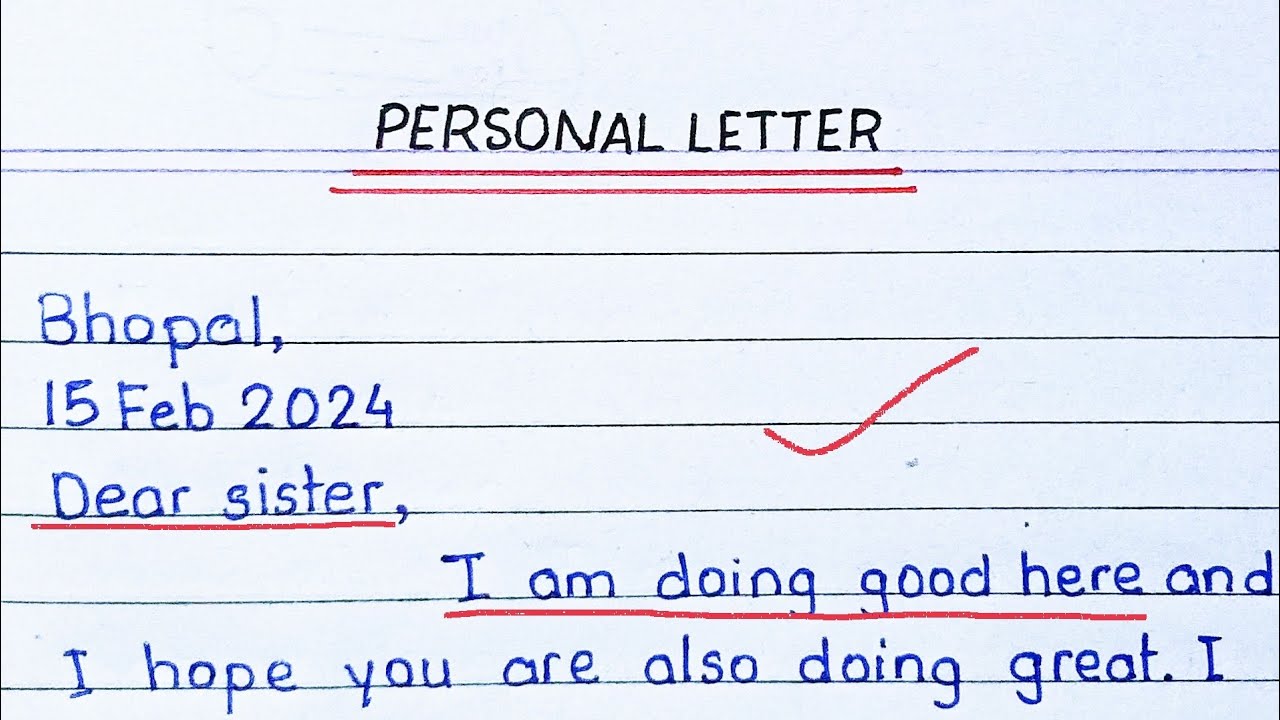 PERSONAL LETTER
Bhopal,
15 Feb 2024
Dear sister,
I am doing good here and
I hope you are also doing great. I